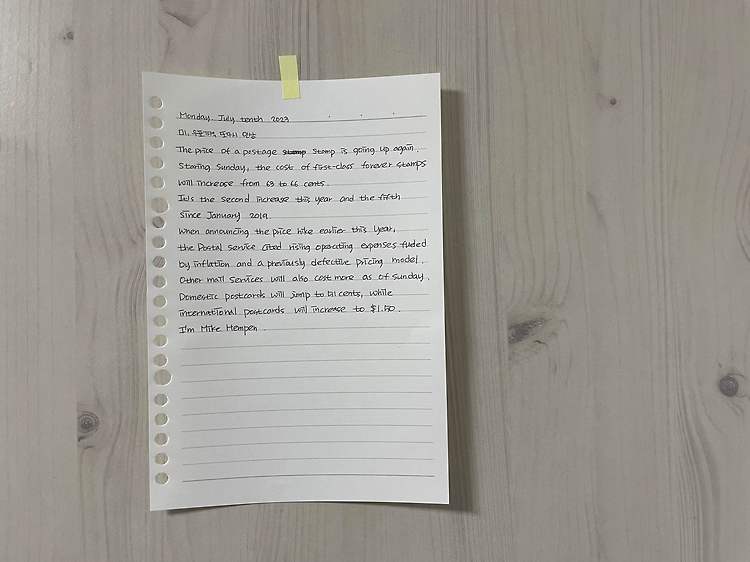 Monday. July tenth 2023
미, 우표가격 또다시 인상
The price of a postage stamp stamp is going up again.
Staring Sunday, the cost of first-class forever stamps
will increase from 63 to 66 cents.
It's the second increase this year and the fifth
since January 2019.
When announcing the price hike earlier this year,
the Postal Service cited rising operating expenses fuded
by inflation and a previously defective pricing model.
Other mail services will also cost more as of Sunday.
Domestic postcards will jump to 51 cents, while
international postcards will increase to $1.50.
I'm Mike Hempen.